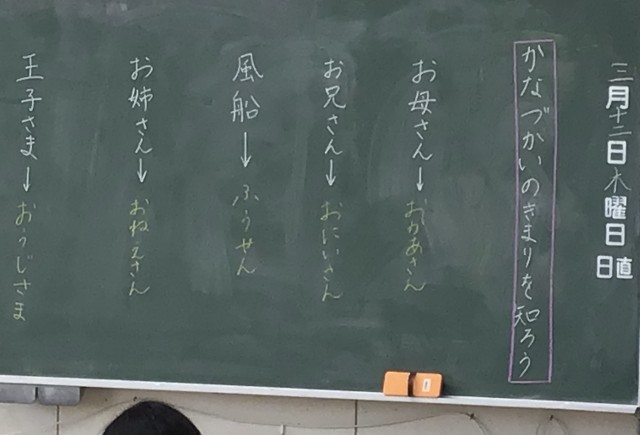 三月十二日木曜日
日直
かなづかいのきまりを知ろう
お母さん→おかあさん
お兄さん→おにいさん
風船→ふうせん
お姉さん→おねえさん
王子さま→おうじさま